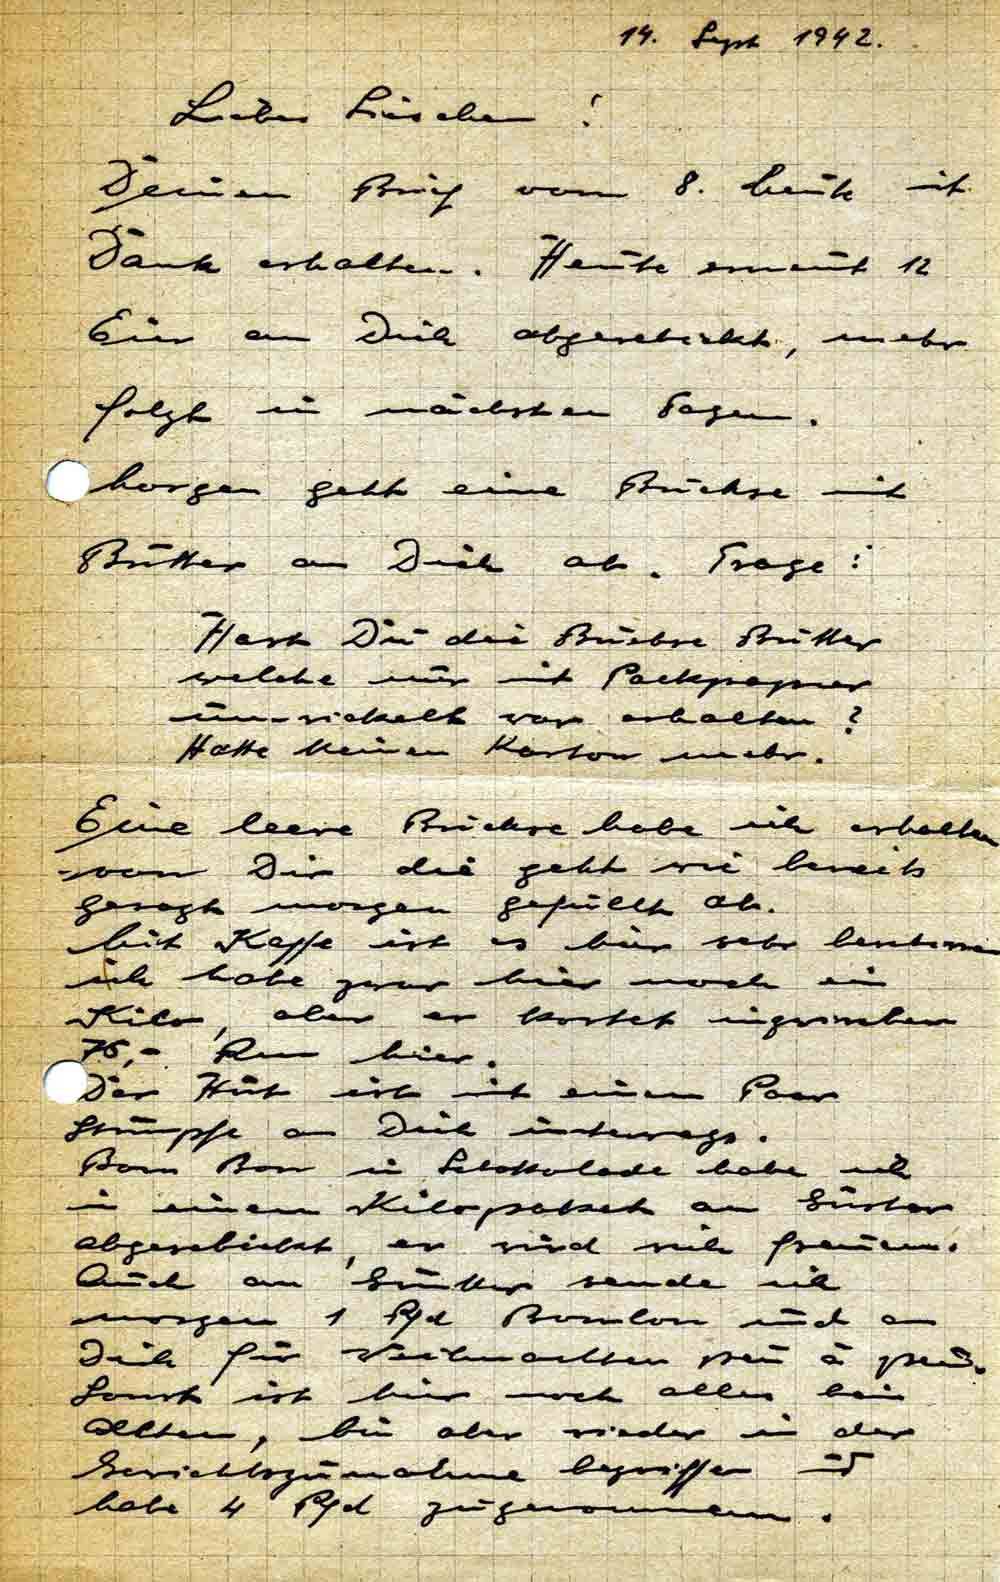 14. Sept 1942.
Liebes Lieschen!
Deinen Brief vom 8. heute mit
Dank erhalten. Heute erneut 12
Eier an Dich abgeschickt, mehr
folgt in nächsten Tagen.
Morgen geht eine Büchse mit
Butter an Dich ab. Frage:
Hast Du die Büchse Butter
welche nur mit Packpapier
umwickelt war erhalten?
Hatte keinen Karton mehr.
Eine leere Büchse habe ich erhalten
von Dir die geht wie bereits
gesagt morgen gefüllt ab.
Mit Kaffe ist es hier sehr
ich habe zwar hier noch ein
Kilo, aber er kostet inzwischen
75,- Rm hier.
Der Hut ist mit einem Paar
Strümpfe an Dich unterwegs.
Bom Bon in Schokolade habe ich
in einem Kilopaket an
abgeschickt, er wird sich freuen.
Auch an sende ich
morgen 1 Pfd Bonbon und an
Dich für Weihnachten peu à peu.
Sonst ist hier noch alles beim
Alten, bin aber wieder in der
Gewichtszunahme begriffen u
habe 4 Pfd zugenommen.